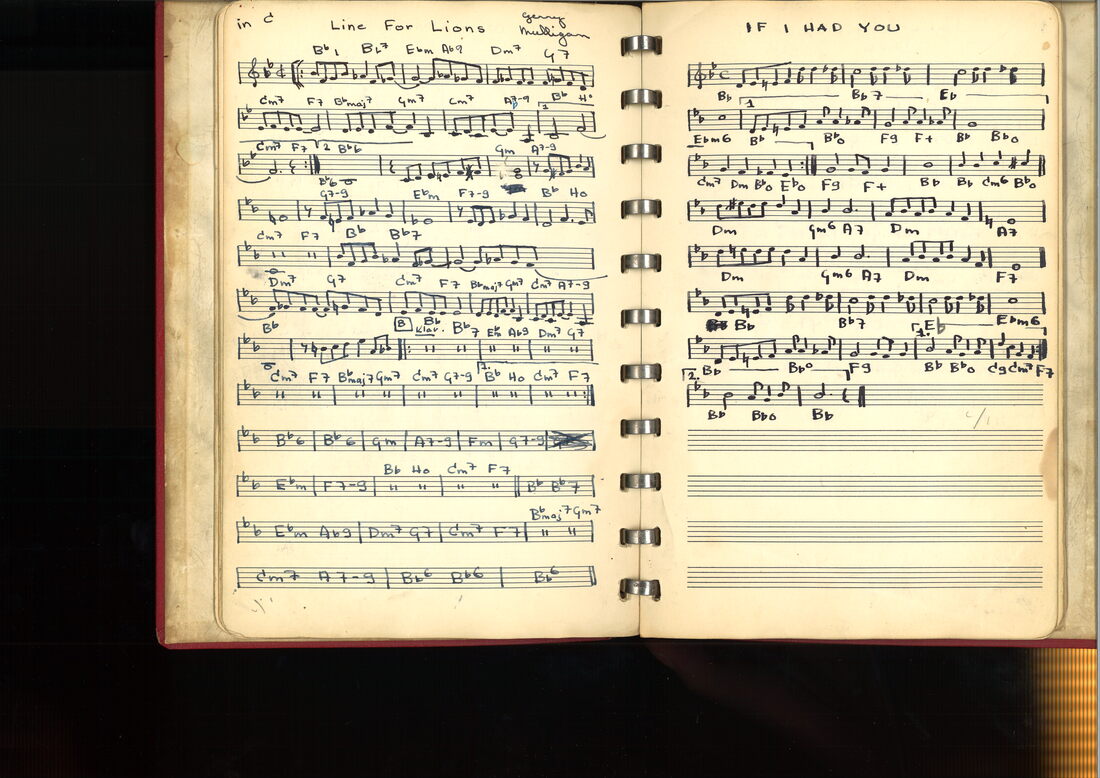 in C
Line For Lions
Gerry Mulligan
Bb Bb7 Ebm Ab9 Dm7 G7
Cm7 F7 Bbmaj7 Gm7 Cm7 A7-9 Bb Ho
1
Cm7 F7 2 Bb6 Gm A7-9
Bb6
G7-9 Ebm F7-9 Bb Ho
Cm7 F7 Bb Bb7
Dm7 G7 Cm7 F7 Bbmaj7 Gm7 Cm7 A7-9
Bb B Klav. Bb Bb7 Ebm Ab9 Dm7 G7
Cm7 F7 Bbmaj7 Gm7 Cm7 G7-9 1. Bb Ho Cm7 F7
Bb6 Bb6 Gm A7-9 Fm G7-9
Bb Ho Cm7 F7
Ebm F7-9 Bb Bb7
Bbmaj7 Gm7
Ebm Ab9 Dm7 G7 Cm7 F7
Cm7 A7-9 Bb6 Bb6 Bb6
IF I HAD YOU
Bb Bb7 Eb
1
Ebm6 Bb Bbo F9 F+ Bb Bbo
2
Cm7 Dm Bbo Ebo F9 F+ Bb Bb Cm6 Bbo
Dm Gm6 A7 Dm A7
Dm Gm6 A7 Dm F7
Bb Bb7 Eb Ebm6
1.
Bb Bbo F9 Bb Bbo C9 Cm7 F7
2.
Bb Bbo Bb